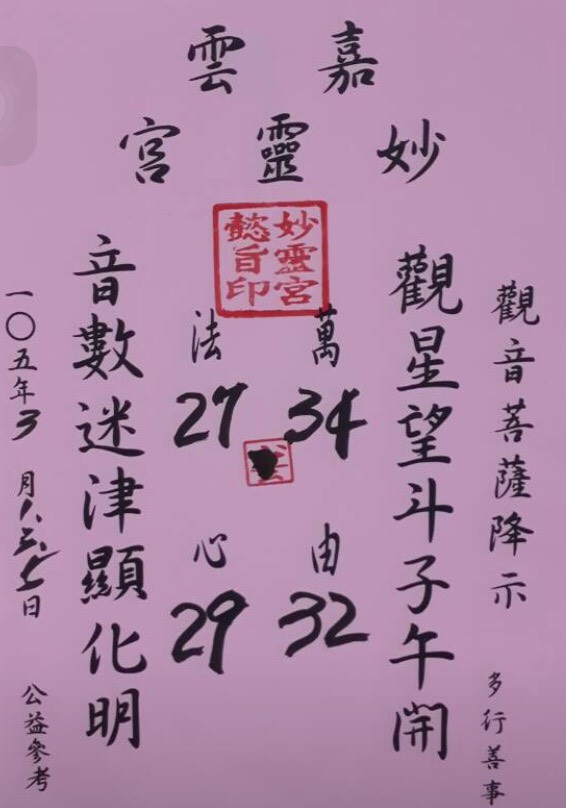 嘉雲
妙靈宮
妙靈宮
懿旨印
觀音菩薩降示
多行善事
觀星望斗子午開
萬法由心
34
27
32
29
音數迷津顯化明
一〇五年3月1、3、7日
公益參考